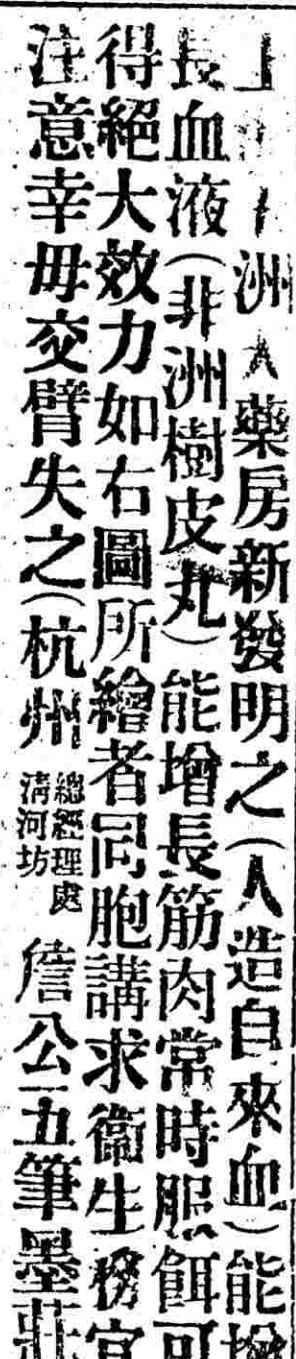 洲大藥房新發明之（人造自來血）能增
長血液（非洲樹皮丸）能增長筋肉常時服餌可
得絕大效力如右圖所繪者同胞講求衞生務宜
注意幸毋交臂失之（杭州
總經理處
淸河坊
詹公五筆墨莊